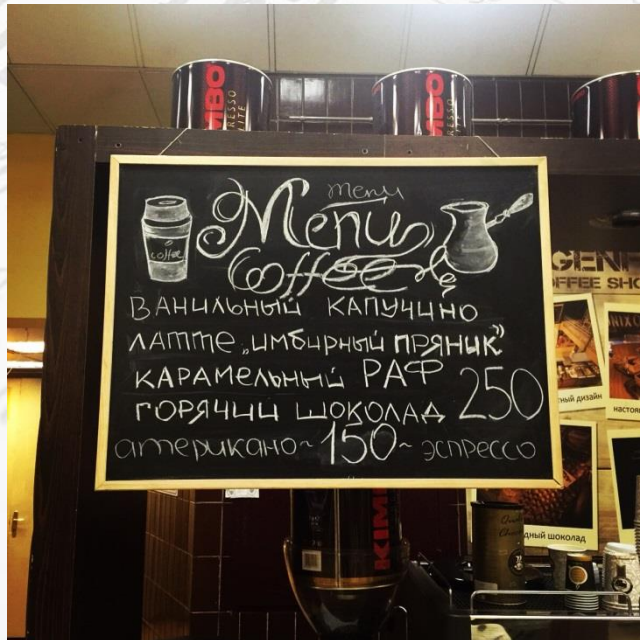 MBO
MBO
MBO
menu
Menu
coffee
coffee
ВАНИЛЬНЫЙ КАПУЧИНО
ЛАТТЕ „ИМБИРНЫЙ ПРЯНИК"
КАРАМЕЛЬНЫЙ РАФ 250
ГОРЯЧИЙ ШОКОЛАД
американо ~ 150 ~ эспрессо
GENE
OFFEE SHO
ный дизайн
насто
дный шоколад
KIMB